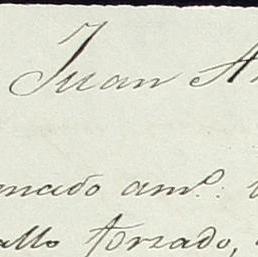 Juan A
mado amº.
allo forzado,